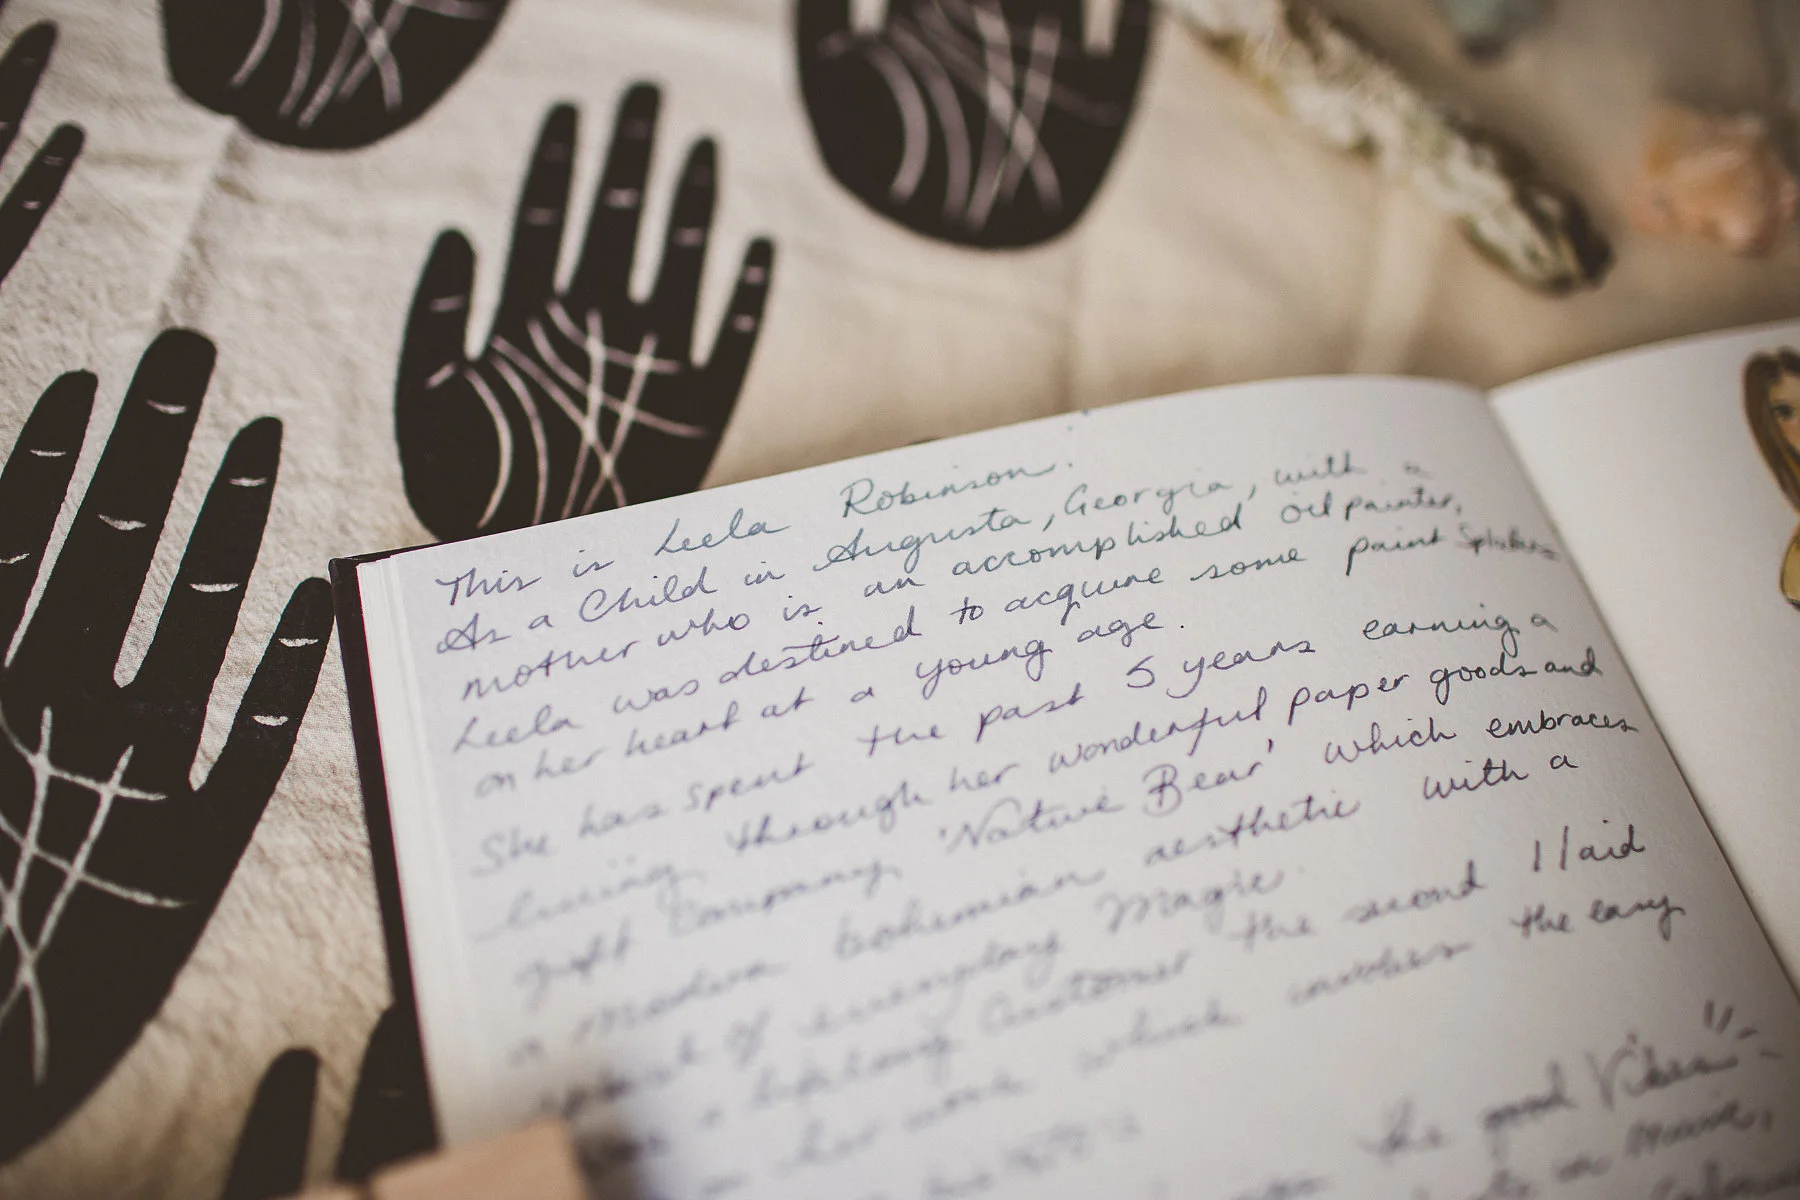 This is Leela Robinson.
As a Child in Augusta, Georgia, with a
mother who is an accomplished oil painter,
Leela was destined to acquire some paint Splatters
on her heart at a young age.
She has spent the past 5 years earning a
living through her wonderful paper goods and
gift Company, 'Native Bear' which embraces
a Modern bohemian aesthetic with a
of everyday Magic.
a lifelong Customer the second I laid
on her work which evokes the easy
the good Vibes"
in Maine,